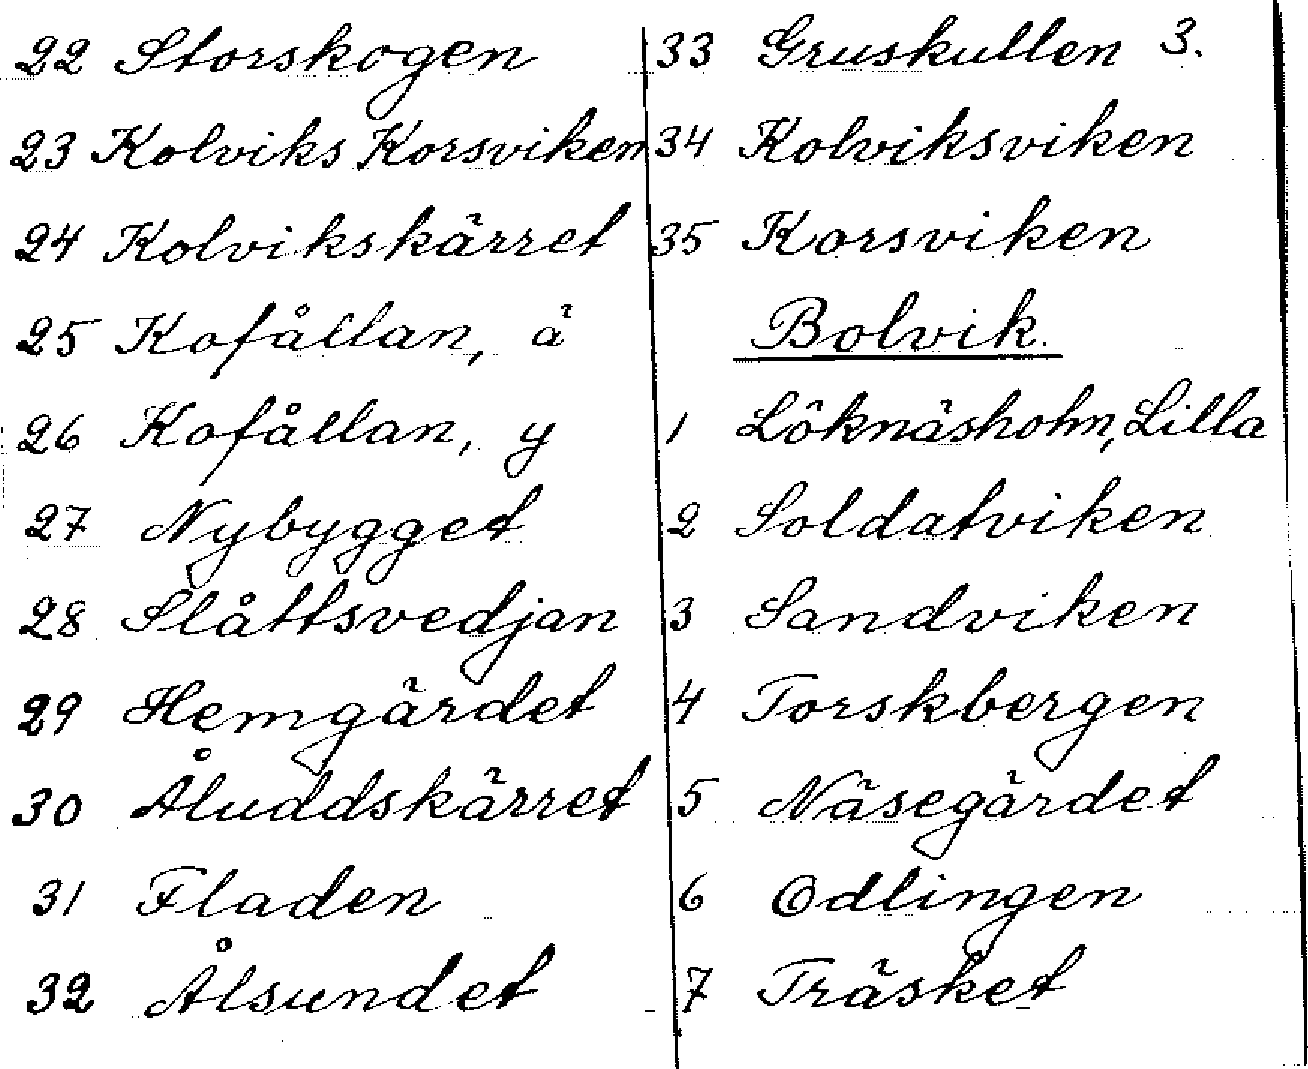 22 Storskogen
23 Kolviks Korsviken
24 Kolvikskärret
25 Kofållan, ä
26 Kofållan, y
27 Nybygget
28 Slåttsvedjan
29 Hemgärdet
30 Åluddskärret
31 Fladen
32 Ålsundet
33 Gruskullen 3.
34 Kolviksviken
35 Korsviken
Bolvik.
1 Löknäsholm, Lilla
2 Soldatviken
3 Sandviken
4 Torskbergen
5 Näsegärdet
6 Odlingen
7 Träsket